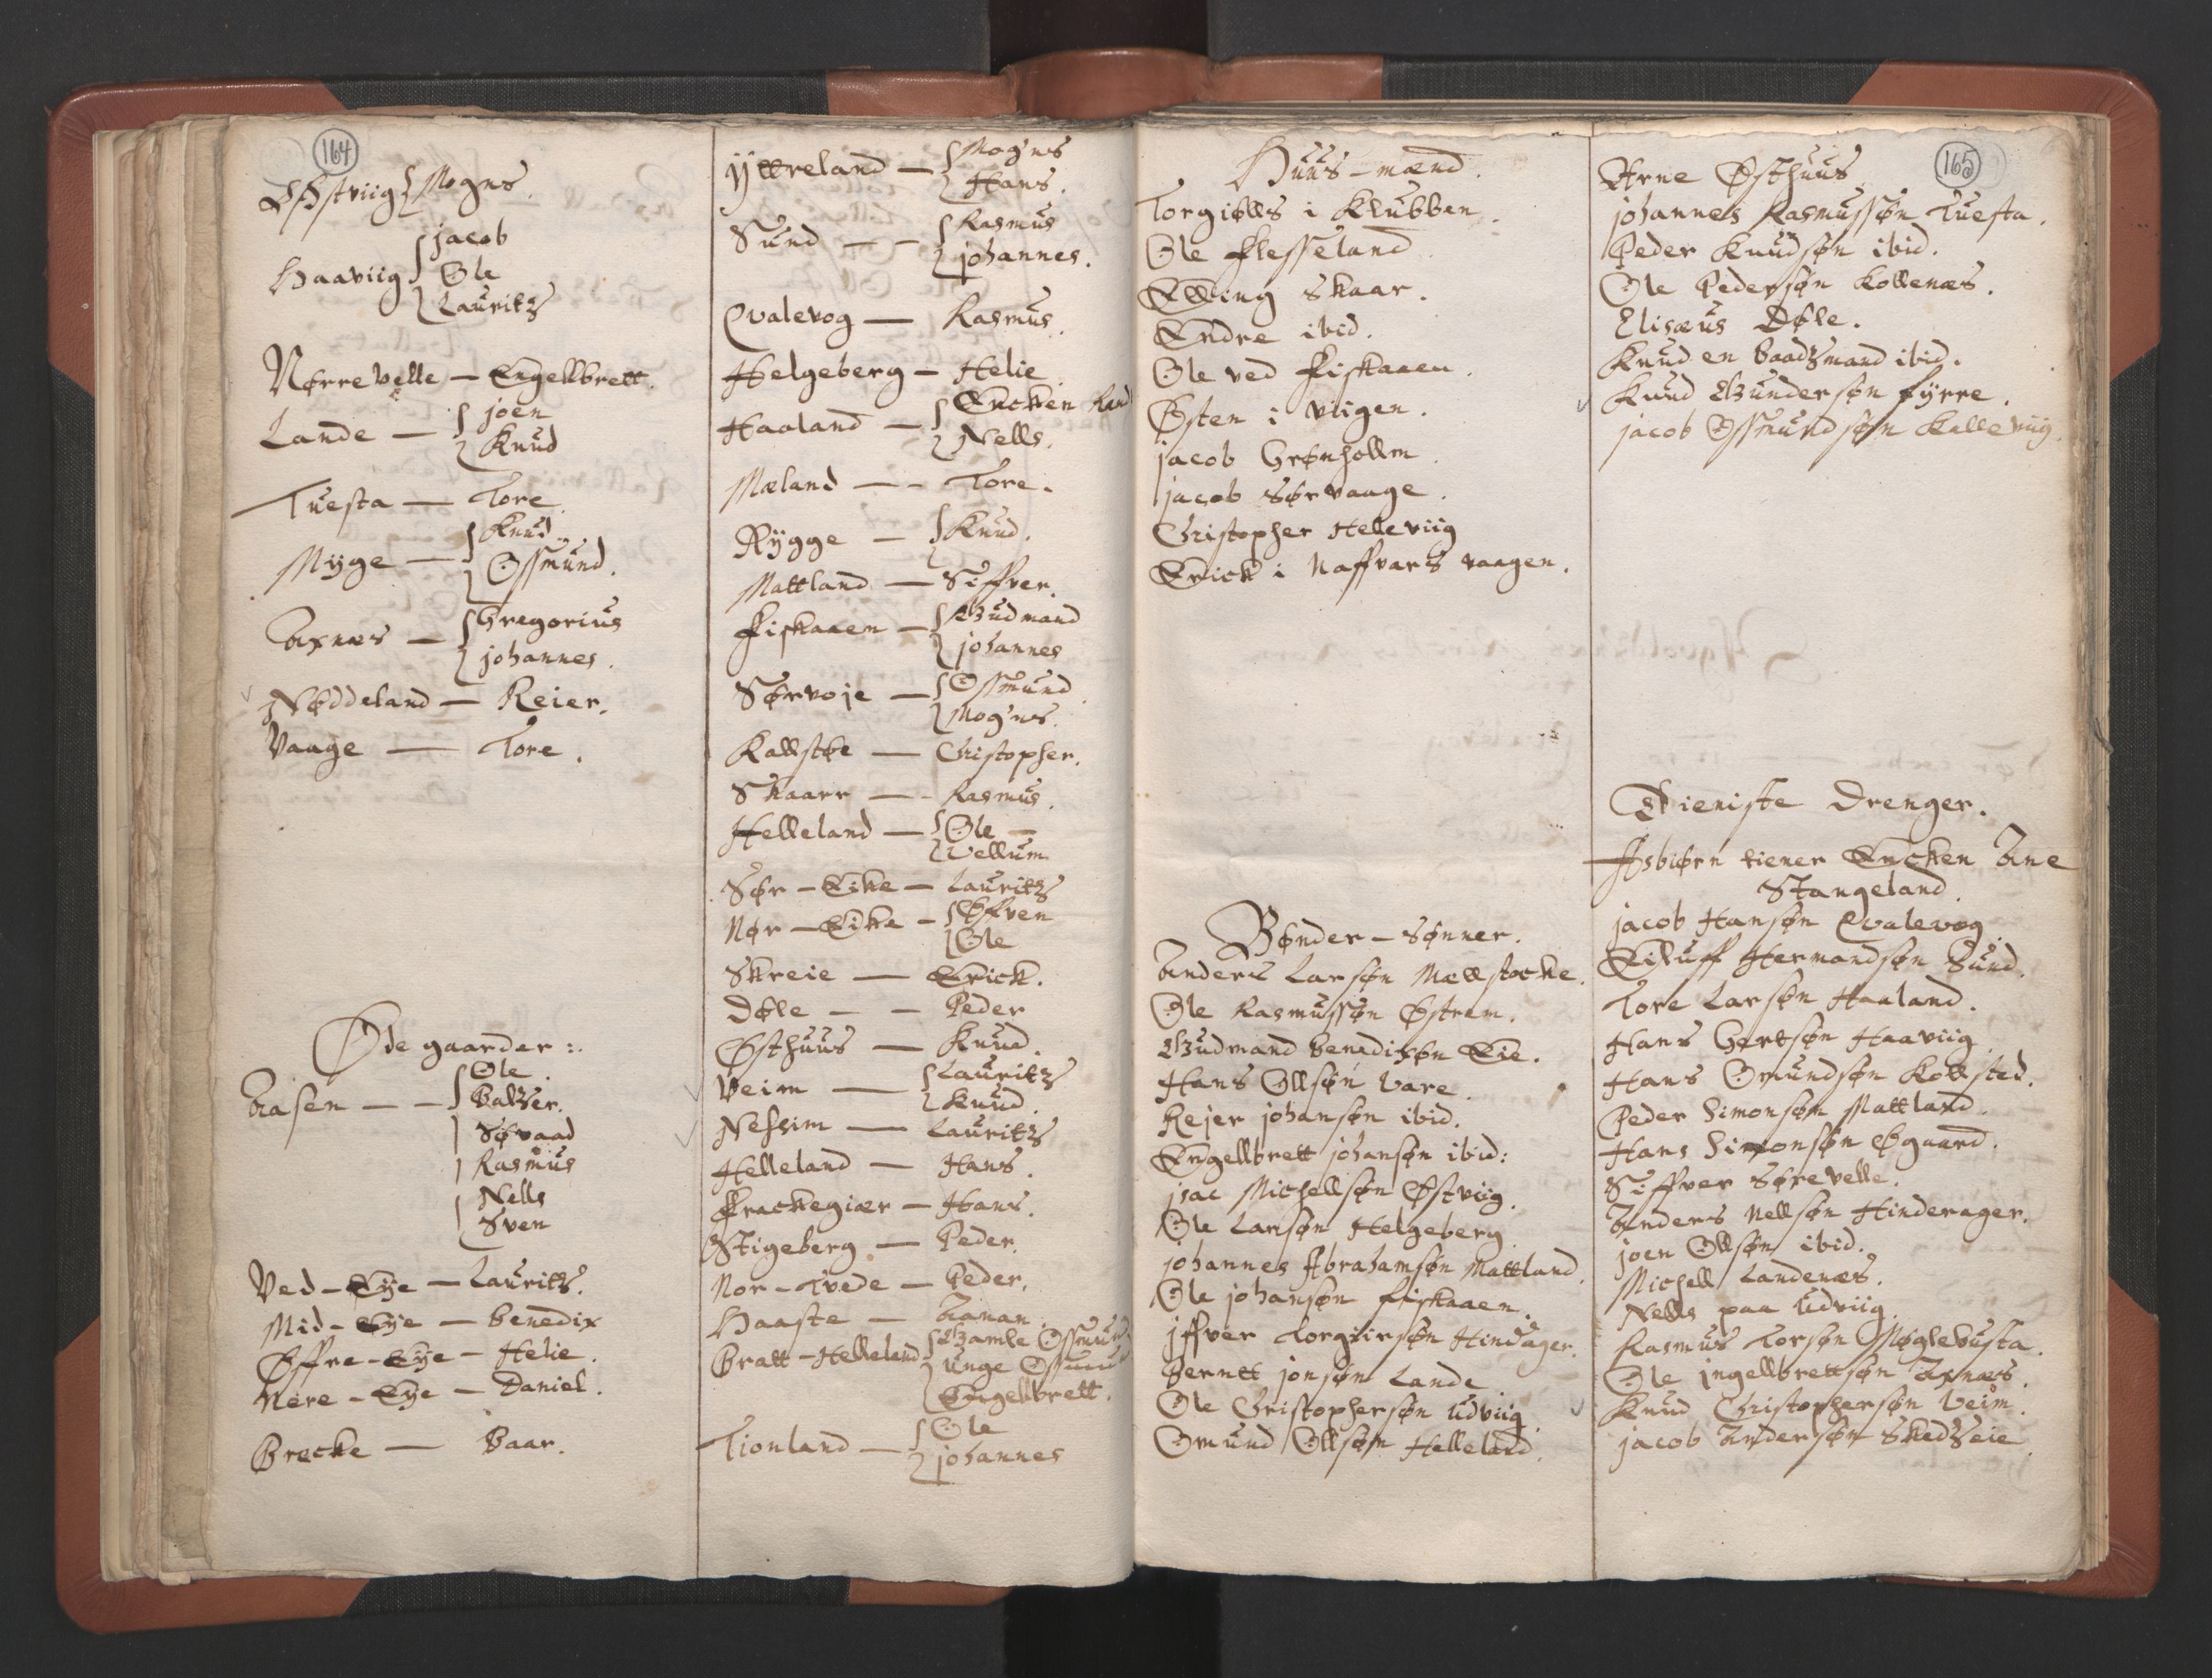 164
Østviig { Mogns.
Haaviig { jacob
Ole
Lauritz
Nørrevelle — Engellbrett.
Lande — { joen
Knud
Tuesta — Tore.
Myge — { Knud
Ossmund.
Axnæs — { Gregorius
johannes.
Nøddeland — Reier.
Vaage — Tore.
Øde gaarder:
Aasen — — { Ole.
Baltzer.
Søvaad
Rasmus
Nells
Sven
Ved-Eye — Lauritz.
Mid-Eye — Benedix
Øffre-Eye — Helie.
Nere-Eye — Daniel.
Brecke — Baar.
Yttreland — { Mogns
Hans.
Sund — — { Rasmus
johannes.
Qvalevog — Rasmus.
Helgeberg — Helie
Haaland — { Encken Rand
Nells.
Mæland — — Tore.
Rygge — { Knud.
Mattland — Siffver.
Fiskaaen — { Gudmand
johannes
Sørvoje — { Ossmund
Mogns.
Kallstøe — Christopher.
Skaarr — — Rasmus.
Helleland — { Ole
Vellum
Sør-Eike — Lauritz
Nør-Eike — { Øffven
Ole
Skreie — Erick.
Døle — — Peder
Østhuus — Knud.
Veim — { Lauritz
Knud.
Nessim — Lauritz
Helleland — Hans.
Frackegiær — Hans.
Stigeberg — Peder.
Nor-Tvede — Peder.
Haaste — Aanan.
Bratt-Helleland { Gamle Ossmund
Unge Ossmund
Engelbrett.
Tionland — { Ole
johannes
Huus-mænd.
Torgiølls i Klubben.
Ole Flesseland
Elling Skaar.
Endre ibid.
Ole ved Fiskaaen.
Østen i Viigen.
jacob Grønhollm
jacob Sørvaage.
Christopher Helleviig
Erick i Naffvars vaagen.
Bønder-Sønner.
Anders Larsøn Mællstocke.
Ole Rasmussøn Østrem.
Gudmand Benedixøn Eie.
Hans Ollsøn Vare.
Rejer johansøn ibid.
Engellbrett johansøn ibid:
jsac Michellsøn Østviig.
Ole Larsøn Helgeberg
johannes Abrahamsøn Mattland.
Ole johansøn Fiskaaen.
jffver Torgiirsøn Hindager.
Berntt jonsøn Lande
Ole Christophersøn Udviig
Omund Ollsøn Helleland.
165
Arne Østhuus
johannes Rasmussøn Tuesta.
Peder Knudsøn ibid.
Ole Pedersøn Kollenæs.
Elisæus Døle.
Knud en baadzmand ibid.
Knud Gundersøn Fyrre.
jacob Ossmundsøn Kalleviig.
Tieniste Drenger.
Asbiørn tiener Encken Ane
Stangeland.
jacob Hansøn Qvalevog
Eiluff Hermandsøn Sund.
Tore Larsøn Haaland.
Hans Gertsøn Haaviig
Hans Omundsøn Kollsted.
Peder Simonsøn Mattland.
Hans Simonsøn Øgaard.
Siffver Sørevelle.
Anders Nellsøn Hinderager.
joen Ollsøn ibid.
Michell Landenæs.
Nells paa Udviig
Rasmus Torsøn Møglebusta.
Ole jngellbrettsøn Axnæs.
Knud Christophersøn Veim.
jacob Andersøn Skedzeie